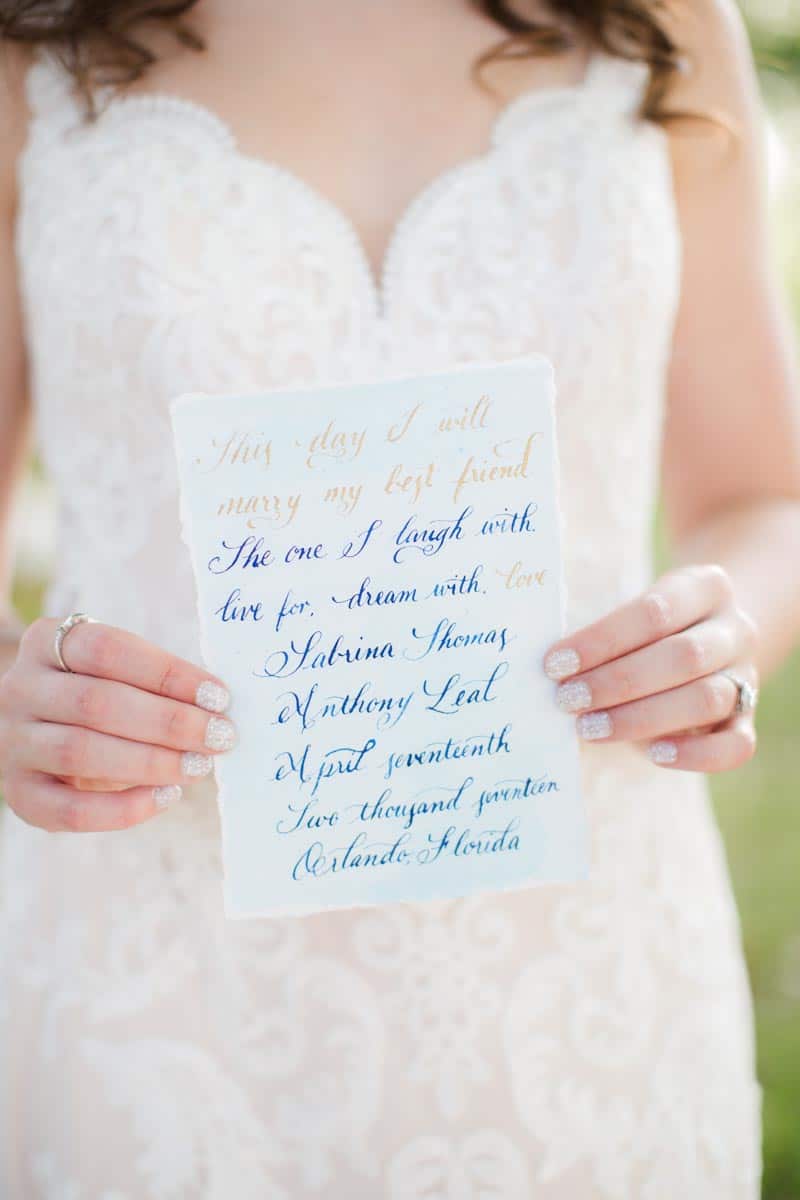 This day I will
marry my best friend
The one I laugh with.
live for. dream with. love
Sabrina Thomas
Anthony Leal
April seventeenth
Two thousand seventeen
Orlando, Florida